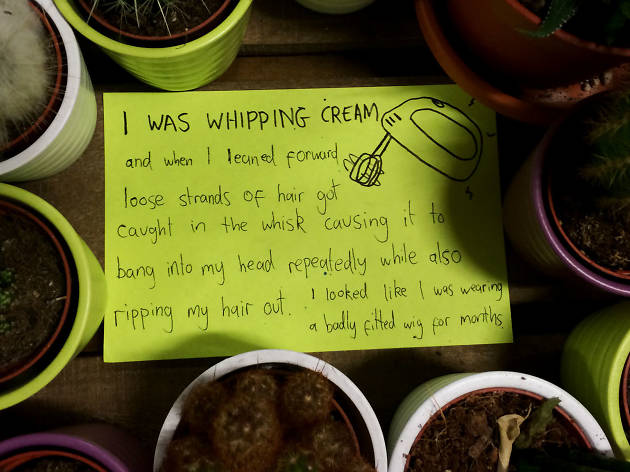 I WAS WHIPPING CREAM
and when I leaned forward
loose strands of hair got
caught in the whisk causing it to
bang into my head repeatedly while also
ripping my hair out. I looked like I was wearing
a badly fitted wig for months.